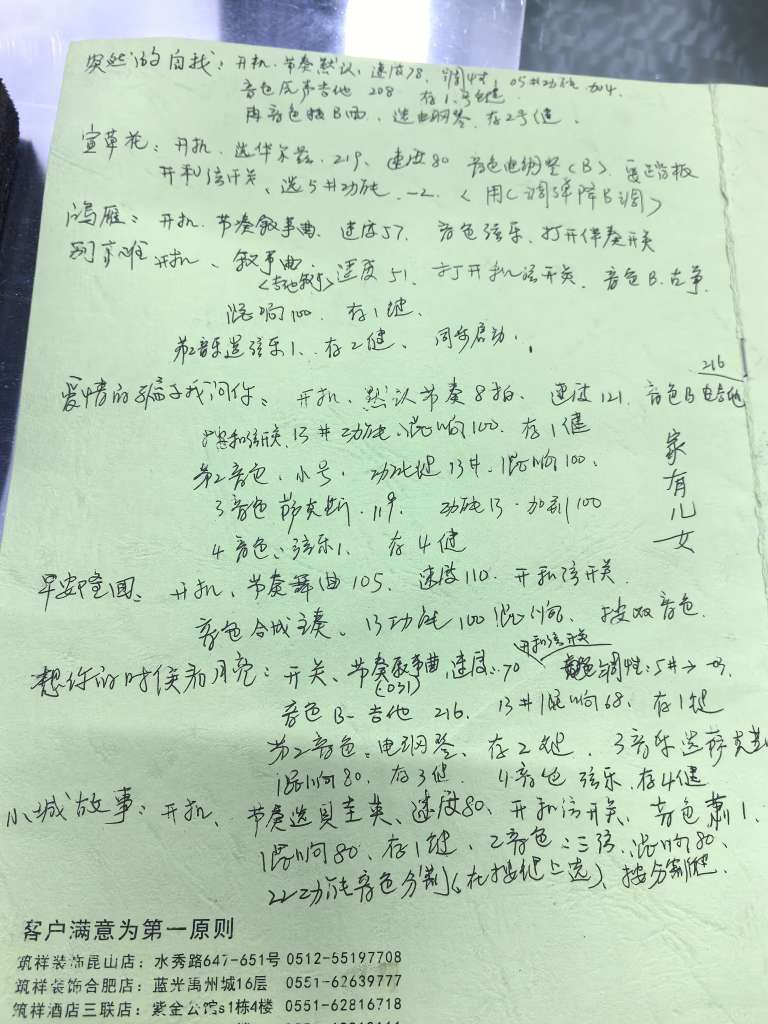 突然的自我：开机、节奏默认、速度78、调4寸、05#功能 加4.
音色原声吉他 208 存1号键
再音色按B西、选电钢琴、存2号键.
萱草花：开机、选华尔兹、219、速度80 音色电钢琴(B) 要延音板
开和弦开关、选5#功能、-2. <用C调弹降B调>
鸿雁：开机、节奏叙事曲、速度57、音色弦乐、打开伴奏开关
开机、叙事曲、速度51、打开和弦开关、音色B.古筝
<吉他叙事>
混响100、存1键.
第2音乐选弦乐1、存2键、同步启动.
爱情的骗子我问你：开机、默认节奏8拍、速度121、音色B电吉他
216
和弦开关、13#功能、混响100、存1键
第2音色、小号、功能键13#、混响100、
3音色萨克斯.119、功能13.加到100
4音色、弦乐1、存4键
家有儿女
早安隆回：开机、节奏舞曲105、速度110.开和弦开关
音色合成主奏、13功能100混响、按双音色.
想你的时候看月亮：开关、节奏叙事曲、速度:70 调性:5#→-03.
(031)
开和弦开关
音色B-吉他 216、13#混响68、存1键
第2音色:电钢琴、存2键、3音乐选萨克斯
混响80、存3键、4音色弦乐、存4键
小城故事：开机、节奏选贝圭英、速度80、开和弦开关、音色萧1、
混响80、存1键、2音色:三弦、混响80、
22功能音色分割(在按键上选)、按分割键.
客户满意为第一原则
筑祥装饰昆山店：水秀路647-651号 0512-55197708
筑祥装饰合肥店：蓝光禹州城16层 0551-62639777
筑祥酒店三联店：紫金公馆s1栋4楼 0551-62816718